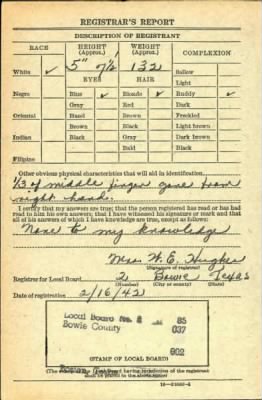 REGISTRAR'S REPORT
DESCRIPTION OF REGISTRANT
RACE HEIGHT (Approx.) WEIGHT (Approx.) COMPLEXION
White ✓ 5" 7½ 132 Sallow
EYES HAIR Light
Negro Blue ✓ Blonde ✓ Ruddy ✓
Gray Red Dark
Oriental Hazel Brown Freckled
Brown Black Light brown
Indian Black Gray Dark brown
Bald Black
Filipino
Other obvious physical characteristics that will aid in identification
1/3 of middle finger gone from
right hand.
I certify that my answers are true; that the person registered has read or has had
read to him his own answers; that I have witnessed his signature or mark and that
all of his answers of which I have knowledge are true, except as follows:
None to my knowledge
Mrs W. E. Hughes
(Signature of registrar)
Registrar for Local Board 2 Bowie Texas
(Number) (City or county) (State)
Date of registration 2/16/42
Local Board No. 2 85
Bowie County 037
002
(STAMP OF LOCAL BOARD)
(The stamp of the Local Board having jurisdiction of the registrant
shall be placed in the above space)